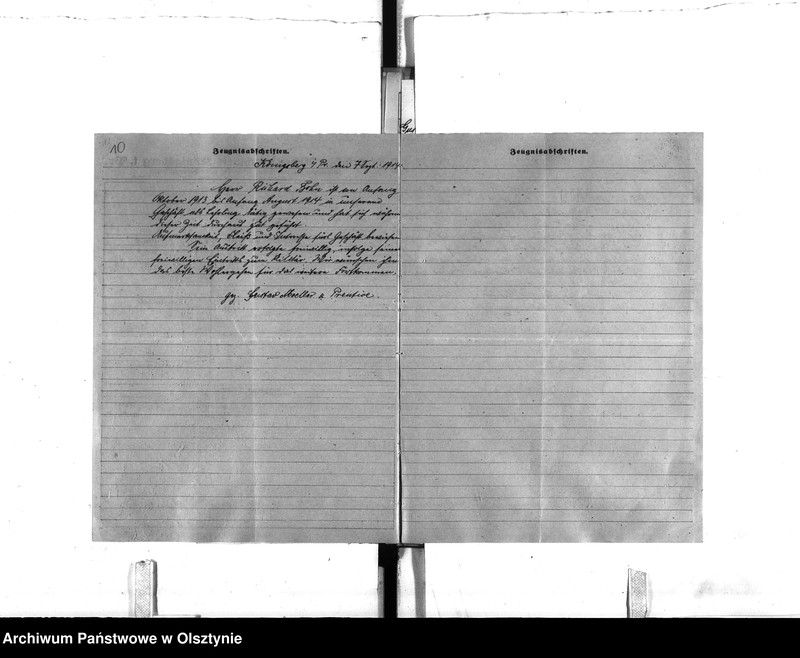 10
Zeugnisabschriften.
Königsberg i/Pr. den 7 Sept. 1914.
Herr Richard Bohn ist von Anfang
Oktober 1913 bis Anfang August 1914 in unserem
Geschäft als Lehrling tätig gewesen und hat sich während
dieser Zeit durchaus gut geführt
Aufmerksamkeit, Fleiß und Interesse fürs Geschäft bewiesen
Sein Austritt erfolgte freiwillig, infolge seines
freiwilligen Eintritts zum Militär. Wir wünschen ihm
das beste Wohlergehen für das weitere Fortkommen.
gez. Gustav Moeller & Prentice.
Zeugnisabschriften.
Archiwum Państwowe w Olsztynie